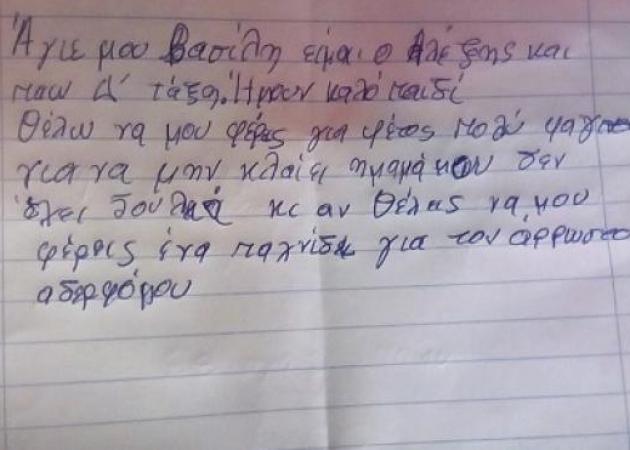 Άγιε μου Βασίλη είμαι ο Αλέξης και
παω Α' τάξη. Ήμουν καλό παιδί
Θέλω να μου φέρεις για φέτος πολύ φαγητο
για να μην κλαίει η μαμά μου δεν
έχει δουλειά κι αν θέλεις να μου
φέρεις ένα παιχνίδι για τον άρρωστο
αδερφό μου